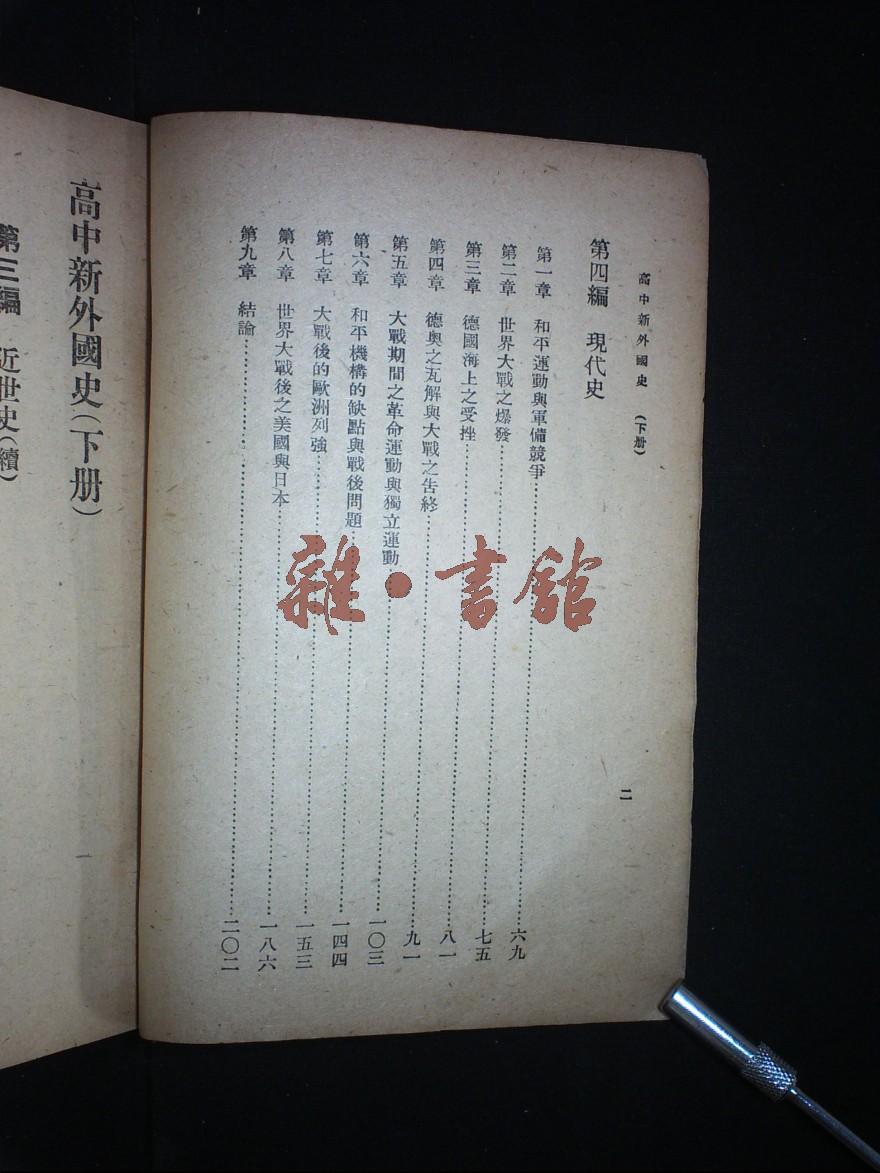 高中新外國史 (下册)
二
第四編 現代史
第一章 和平運動與軍備競爭……六九
第二章 世界大戰之爆發……七五
第三章 德國海上之受挫……八一
第四章 德奧之瓦解與大戰之告終……九一
第五章 大戰期間之革命運動與獨立運動……一〇三
第六章 和平機構的缺點與戰後問題……一四四
第七章 大戰後的歐洲列強……一五三
第八章 世界大戰後之美國與日本……一八六
第九章 結論……二〇二
高中新外國史(下册)
第三編 近世史(續)
一
雜·書館